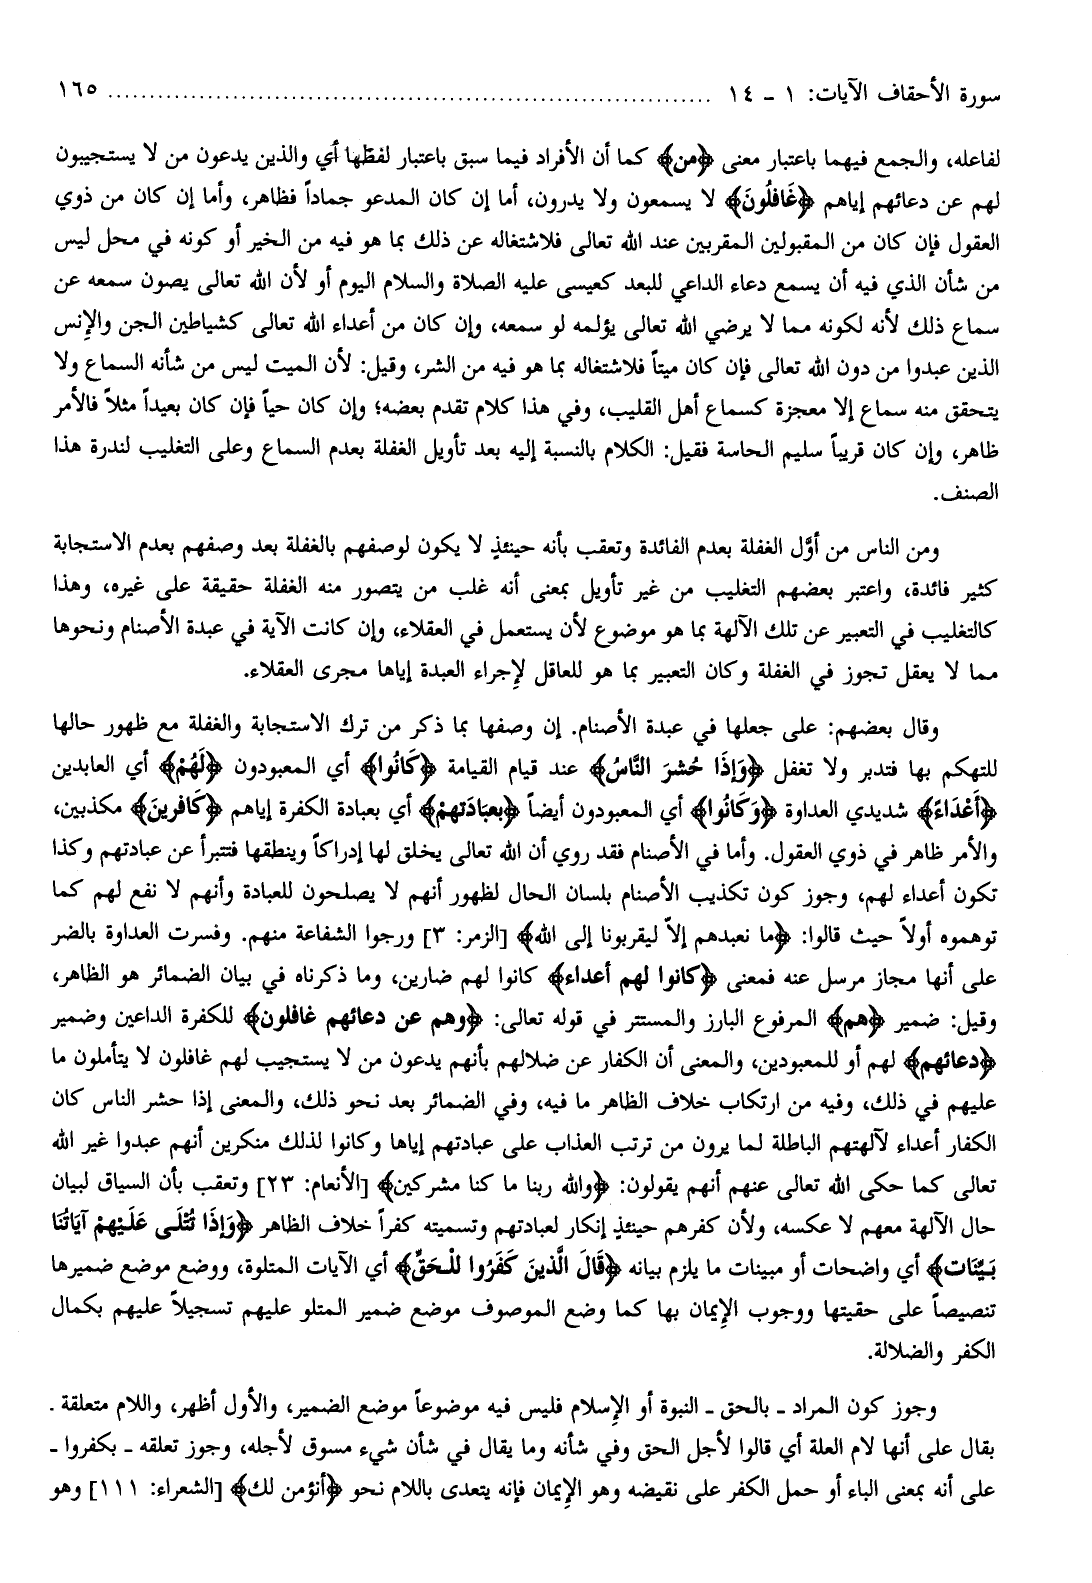 سورة الأحقاف الآيات: ١ - ١٤ ........................................................................ ١٦٥
لفاعله، والجمع فيهما باعتبار معنى ﴿من﴾ كما أن الأفراد فيما سبق باعتبار لفظها أي والذين يدعون من لا يستجيبون
لهم عن دعائهم إياهم ﴿غَافِلُونَ﴾ لا يسمعون ولا يدرون، أما إن كان المدعو جماداً فظاهر، وأما إن كان من ذوي
العقول فإن كان من المقبولين المقربين عند الله تعالى فلاشتغاله عن ذلك بما هو فيه من الخير أو كونه في محل ليس
من شأن الذي فيه أن يسمع دعاء الداعي للبعد كعيسى عليه الصلاة والسلام اليوم أو لأن الله تعالى يصون سمعه عن
سماع ذلك لأنه لكونه مما لا يرضي الله تعالى يؤلمه لو سمعه، وإن كان من أعداء الله تعالى كشياطين الجن والإنس
الذين عبدوا من دون الله تعالى فإن كان ميتاً فلاشتغاله بما هو فيه من الشر، وقيل: لأن الميت ليس من شأنه السماع ولا
يتحقق منه سماع إلا معجزة كسماع أهل القليب، وفي هذا كلام تقدم بعضه؛ وإن كان حياً فإن كان بعيداً مثلاً فالأمر
ظاهر، وإن كان قريباً سليم الحاسة فقيل: الكلام بالنسبة إليه بعد تأويل الغفلة بعدم السماع وعلى التغليب لندرة هذا
الصنف.
ومن الناس من أوَّل الغفلة بعدم الفائدة وتعقب بأنه حينئذٍ لا يكون لوصفهم بالغفلة بعد وصفهم بعدم الاستجابة
كثير فائدة، واعتبر بعضهم التغليب من غير تأويل بمعنى أنه غلب من يتصور منه الغفلة حقيقة على غيره، وهذا
كالتغليب في التعبير عن تلك الآلهة بما هو موضوع لأن يستعمل في العقلاء، وإن كانت الآية في عبدة الأصنام ونحوها
مما لا يعقل تجوز في الغفلة وكان التعبير بما هو للعاقل لإجراء العبدة إياها مجرى العقلاء.
وقال بعضهم: على جعلها في عبدة الأصنام. إن وصفها بما ذكر من ترك الاستجابة والغفلة مع ظهور حالها
للتهكم بها فتدبر ولا تغفل ﴿وَإِذَا حُشرَ النَّاسُ﴾ عند قيام القيامة ﴿كَانُوا﴾ أي المعبودون ﴿لَهُمْ﴾ أي العابدين
﴿أَعْدَاءً﴾ شديدي العداوة ﴿وَكَانُوا﴾ أي المعبودون أيضاً ﴿بعبَادَتهمْ﴾ أي بعبادة الكفرة إياهم ﴿كَافرينَ﴾ مكذبين،
والأمر ظاهر في ذوي العقول. وأما في الأصنام فقد روي أن الله تعالى يخلق لها إدراكاً وينطقها فتتبرأ عن عبادتهم وكذا
تكون أعداء لهم، وجوز كون تكذيب الأصنام بلسان الحال لظهور أنهم لا يصلحون للعبادة وأنهم لا نفع لهم كما
توهموه أولاً حيث قالوا: ﴿ما نعبدهم إلاّ ليقربونا إلى الله﴾ [الزمر: ٣] ورجوا الشفاعة منهم. وفسرت العداوة بالضر
على أنها مجاز مرسل عنه فمعنى ﴿كانوا لهم أعداء﴾ كانوا لهم ضارين، وما ذكرناه في بيان الضمائر هو الظاهر،
وقيل: ضمير ﴿هم﴾ المرفوع البارز والمستتر في قوله تعالى: ﴿وهم عن دعائهم غافلون﴾ للكفرة الداعين وضمير
﴿دعائهم﴾ لهم أو للمعبودين، والمعنى أن الكفار عن ضلالهم بأنهم يدعون من لا يستجيب لهم غافلون لا يتأملون ما
عليهم في ذلك، وفيه من ارتكاب خلاف الظاهر ما فيه، وفي الضمائر بعد نحو ذلك، والمعنى إذا حشر الناس كان
الكفار أعداء لآلهتهم الباطلة لما يرون من ترتب العذاب على عبادتهم إياها وكانوا لذلك منكرين أنهم عبدوا غير الله
تعالى كما حكى الله تعالى عنهم أنهم يقولون: ﴿والله ربنا ما كنا مشركين﴾ [الأنعام: ٢٣] وتعقب بأن السياق لبيان
حال الآلهة معهم لا عكسه، ولأن كفرهم حينئذٍ إنكار لعبادتهم وتسميته كفراً خلاف الظاهر ﴿وَإِذَا تُتْلَى عَلَيْهمْ آيَاتُنَا
بَيِّنَات﴾ أي واضحات أو مبينات ما يلزم بيانه ﴿قَالَ الَّذينَ كَفَرُوا للْحَقِّ﴾ أي الآيات المتلوة، ووضع موضع ضميرها
تنصيصاً على حقيتها ووجوب الإيمان بها كما وضع الموصوف موضع ضمير المتلو عليهم تسجيلاً عليهم بكمال
الكفر والضلالة.
وجوز كون المراد ـ بالحق ـ النبوة أو الإسلام فليس فيه موضوعاً موضع الضمير، والأول أظهر، واللام متعلقة ـ
بقال على أنها لام العلة أي قالوا لأجل الحق وفي شأنه وما يقال في شأن شيء مسوق لأجله، وجوز تعلقه ـ بكفروا ـ
على أنه بمعنى الباء أو حمل الكفر على نقيضه وهو الإيمان فإنه يتعدى باللام نحو ﴿أنؤمن لك﴾ [الشعراء: ١١١] وهو